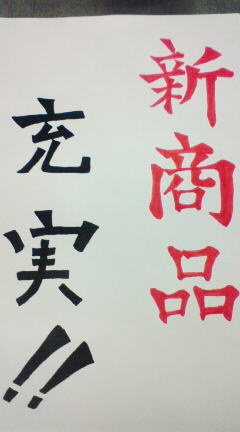 新商品
充実!!